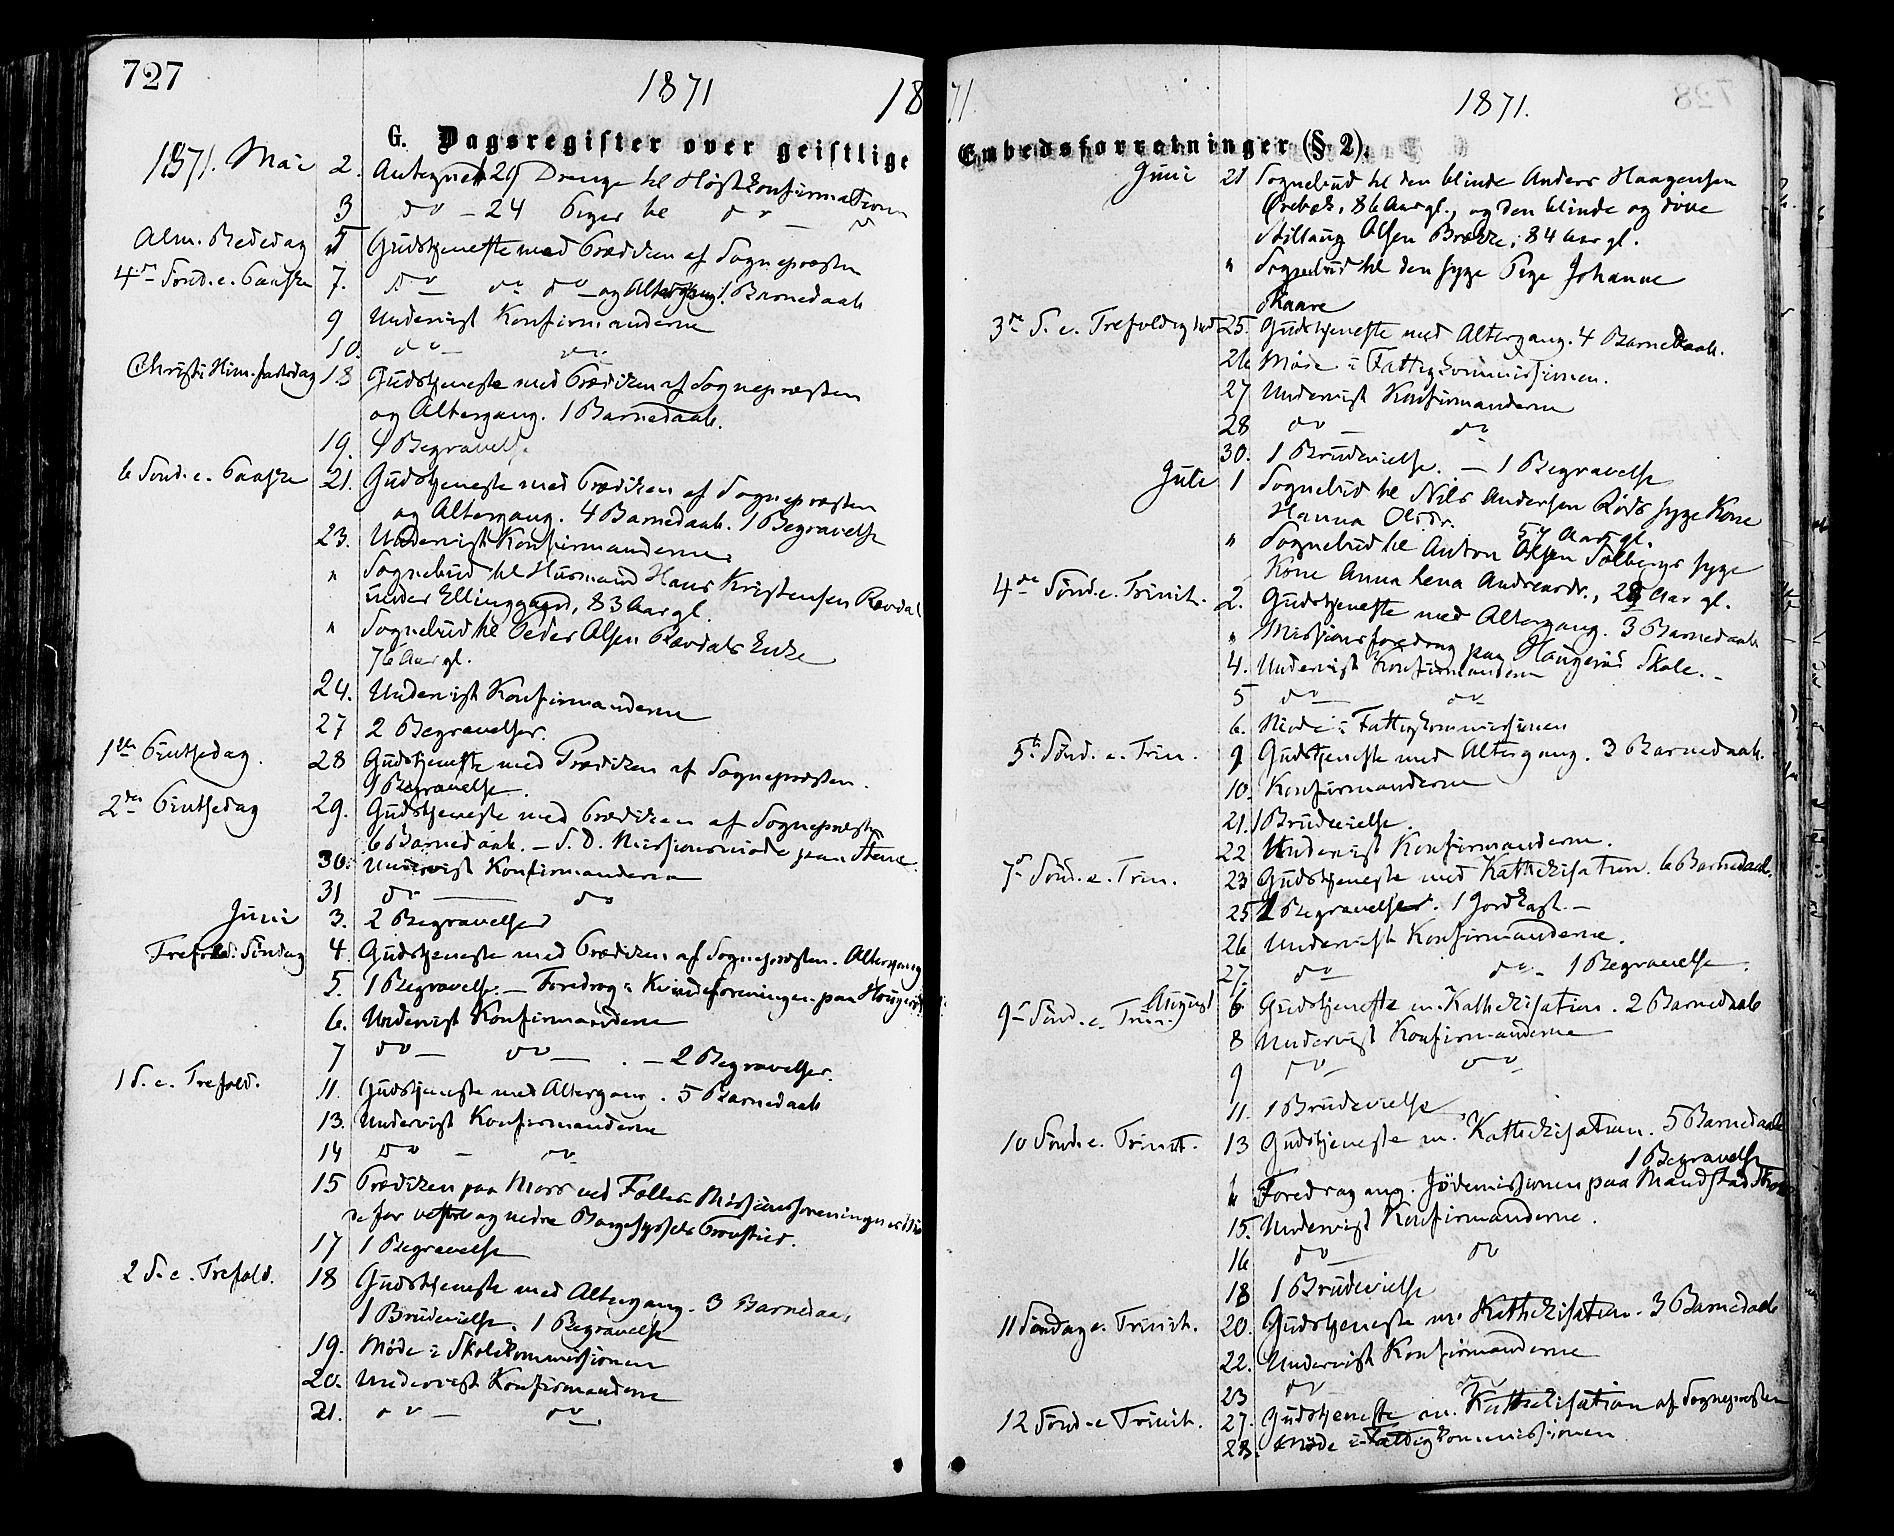 727
1871
G. Dagsregister over geistlige
1871. Mai 2. Antegnet 29 Drenge til Høstkonfirmation
3 do – 24 Piger til do – do
Alm. Bededag 5 Gudstjeneste med Prædiken af Sognepræsten
4de Sønd. e. Paaske 7. do do do og Altergang 1. Barnedaab
9 Undervist Konfirmanderne
10. do – do
Christi Him. fartsdag 18 Gudstjeneste med Prædiken af Sognepræsten
og Altergang. 1 Barnedaab.
19. 4 Begravels.
6 Sønd. e. Paaske 21. Gudstjeneste med Prædiken af Sognepræsten
og Altergang. 4 Barnedaab. 1 Begravelse
23. Undervist Konfirmanderne
" Sognebud til Husmand Hans Kristensen Rævdal
under Ellinggaard, 83 Aar gl.
" Sognebud til Peder Olsen Rævdals Enke
76 Aar gl.
24. Undervist Konfirmanderne
27 2 Begravelser.
1ste Pintsedag. 28 Gudstjeneste med Prædiken af Sognepræsten.
1 Begravelse.
2den Pintsedag 29. Gudstjeneste med Prædiken af Sognepræsten
6 Barnedaab. – S. D. Missionsmøde paa Stene.
30. Undervist Konfirmanderne
31 do do
Juni 3. 2 Begravelser
Trefold. Søndag 4. Gudstjeneste med Prædiken af Sognepræsten. Altergang
5. 1 Begravelse. – Foredrag i Kvindeforeningen paa
6. Undervist Konfirmanderne
7 do – do – . – 2 Begravelser.
1 S. e. Trefold. 11. Gudstjeneste med Altergang. 5 Barnedaab
13. Undervist Konfirmanderne
14 do – do
15 Prædiken paa Moss ved Fælles Missionsforeningen
for vestre og nedre Borgesyssels Provstier.
17 1 Begravelse
2 S. e. Trefold. 18 Gudstjeneste med Altergang. 3 Barnedaab
1 Brudevielse. 1 Begravelse
19. Møde i Skolekommissionen
20. Undervist Konfirmanderne
21. do – do
1871
1871.
Embedsforretninger (§ 2).
Juni 21 Sognebud til den blinde Anders Haagensen
Ørebæk, 86 Aar gl., og den blinde og døve
Olsen Brække, 84 Aar gl.
" Sognebud til den syge Pige Johanne
Skaare
3die S. e. Trefoldighed 25. Gudstjeneste med Altergang. 4 Barnedaab.
26 Møde i Fattigkommissionen.
27 Undervist Konfirmanderne
28 do – do
30. 1 Brudevielse. – 1 Begravelse
Juli 1 Sognebud til Nils Andersen Røds syge Kone
Hanna Olsdr. 54 Aar gl.
" Sognebud til Anton Olsen Solbergs syge
Kone Anna Lena Andreasdr., 28 Aar gl.
4de Sønd. e. Trinit. 2. Gudstjeneste med Altergang. 3 Barnedaab
" Missionsforedrag paa Skole. –
4. Undervist Konfirmanderne
5 do do
6. Møde i Fattigkommissionen
5te Sønd. e. Trin. 9 Gudstjeneste med Altergang. 3 Barnedaab.
10. Konfirmanderne
21. 1 Brudevielse.
22 Undervist Konfirmanderne.
7de Sønd. e. Trin. 23 Gudstjeneste med Kathekisation. 6 Barnedaab.
25 2 Begravelser. 1 Jordkast. –
26 Undervist Konfirmanderne.
27. do do – 1 Begravelse.
9de Sønd. e. Trin. August 6 Gudstjeneste m. Kathekisation. 2 Barnedaab
8 Undervist Konfirmanderne
9 do do
11. 1 Brudevielse
10 Sønd. e. Trinit. 13 Gudstjeneste m. Kathekisation. 5 Barnedaab
1 Begravelse
" Foredrag ang. Jødemissionen paa
15. Undervist Konfirmanderne.
16 do – do
18 1 Brudevielse
11 Søndag e. Trinit. 20. Gudstjeneste m. Kathekisation. 3 Barnedaab
22. Undervist Konfirmanderne
23 do do
12 Sønd. e. Trinit. 27. Gudstjeneste m. Kathekisation af Sognepræsten
28. Møde i Fattigkommissionen